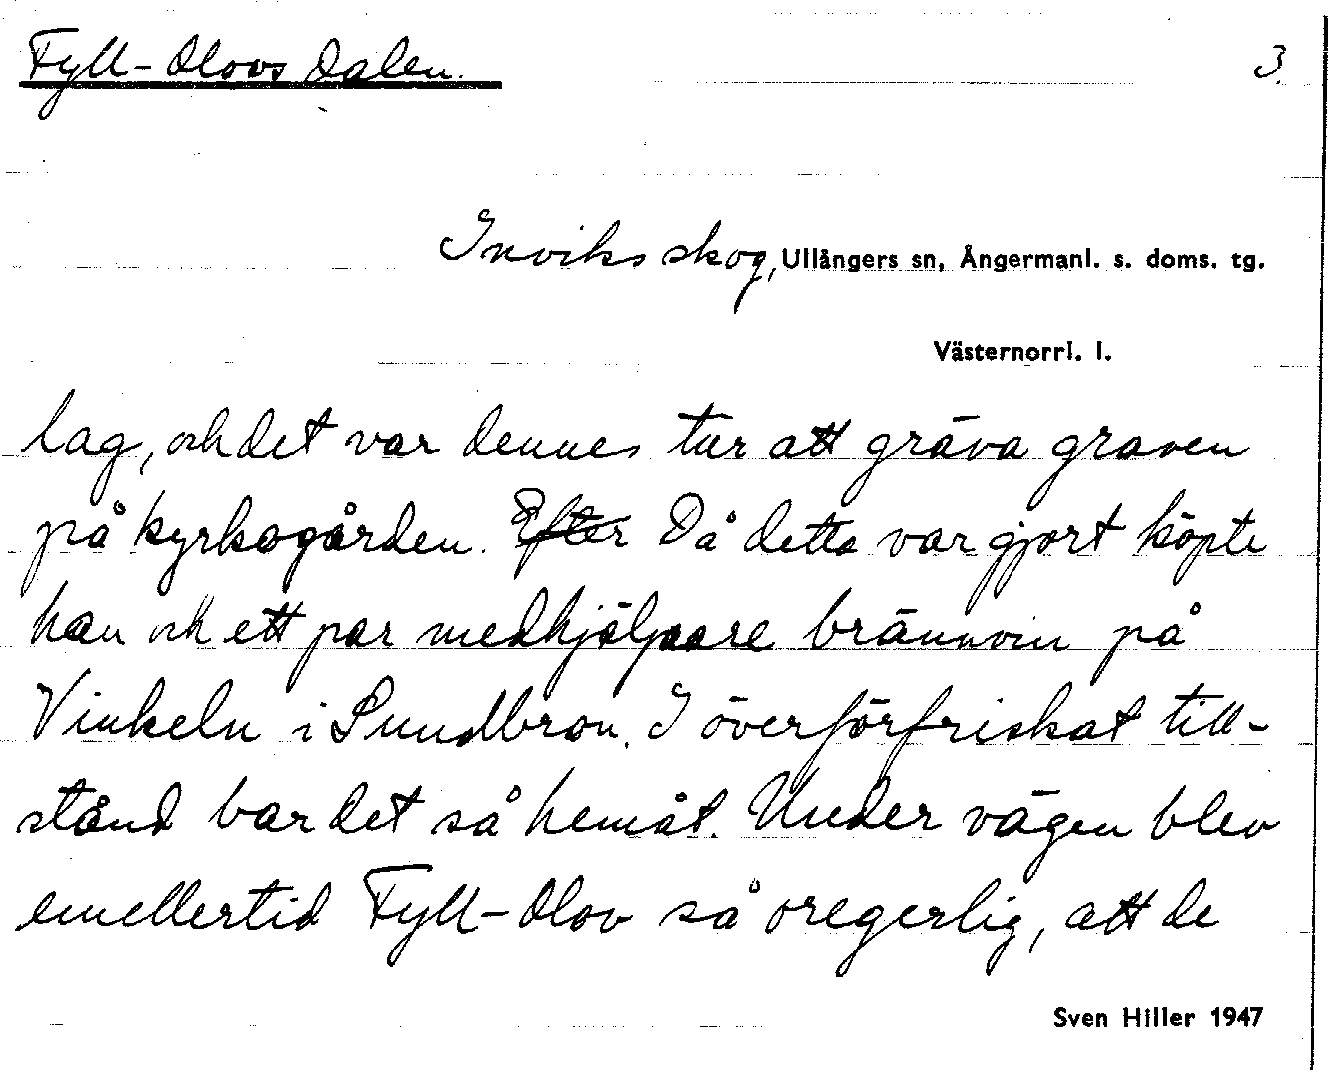 Fyll-Olovs dalen.
3.
Inviks skog, Ullångers sn, Ångermanl. s. doms. tg.
Västernorrl. l.
lag, och det var dennes tur att gräva graven
på kyrkogården. Efter Då detta var gjort köpte
han och ett par medhjälpare brännvin på
Vinkeln i Sundbron. I överförfriskat till-
stånd bar det så hemåt. Under vägen blev
emellertid Fyll-Olov så oregerlig, att de
Sven Hiller 1947